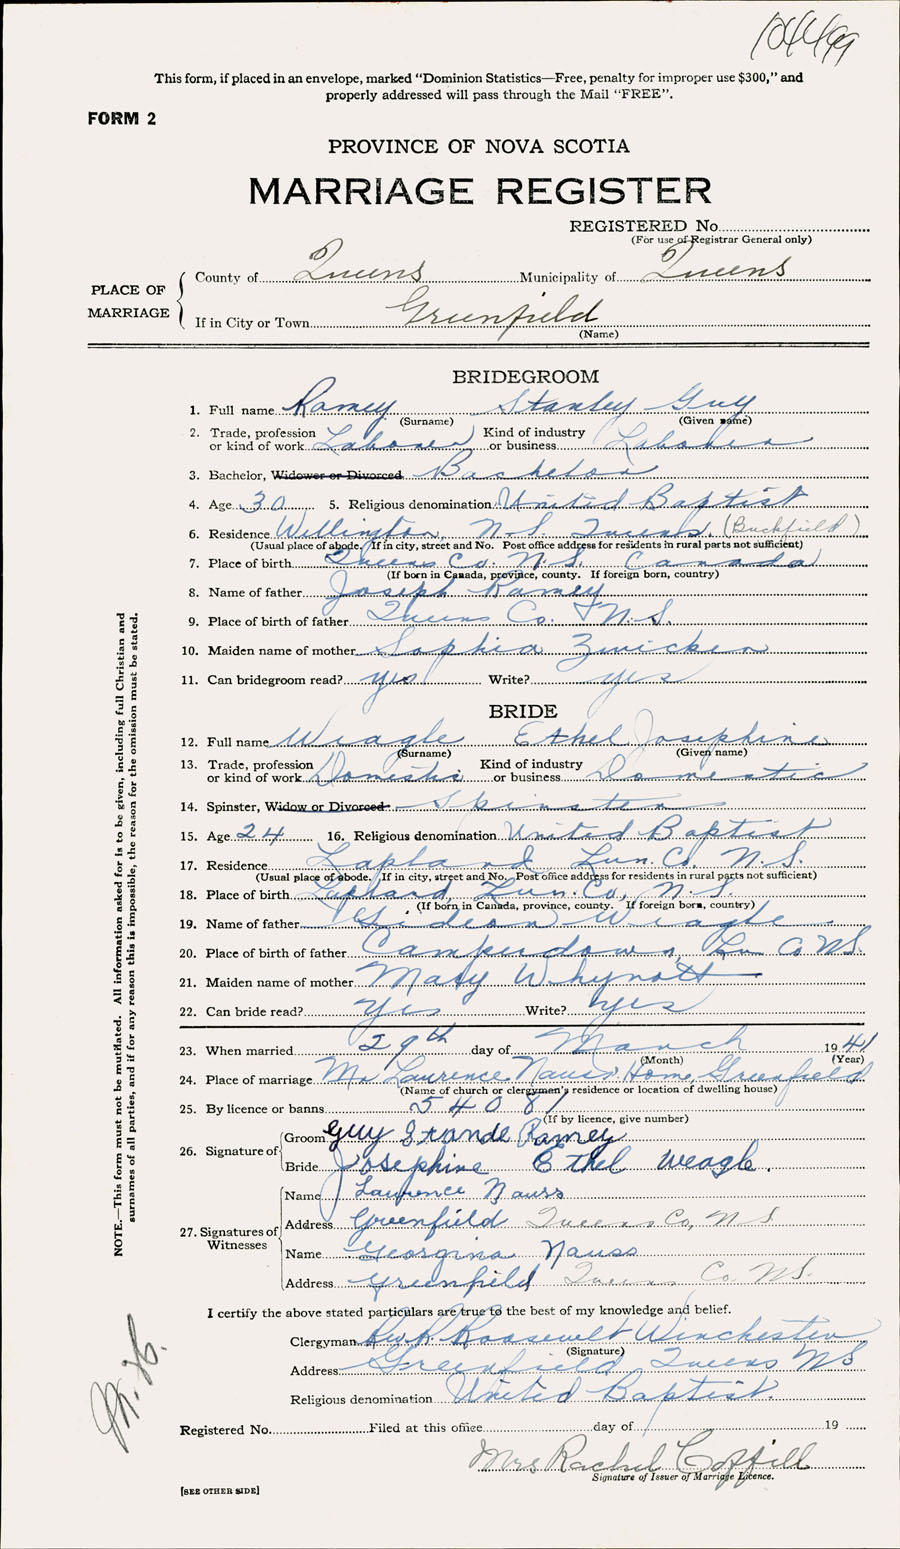 104499
This form, if placed in an envelope, marked "Dominion Statistics—Free, penalty for improper use $300," and
properly addressed will pass through the Mail "FREE".
FORM 2
PROVINCE OF NOVA SCOTIA
MARRIAGE REGISTER
REGISTERED No.
(For use of Registrar General only)
PLACE OF MARRIAGE
County of Queens Municipality of Queens
If in City or Town Greenfield
(Name)
BRIDEGROOM
1. Full name Ramey Stanley Guy
(Surname) (Given name)
2. Trade, profession or kind of work Laborer Kind of industry or business Laborer
3. Bachelor, Widower or Divorced Bachelor
4. Age 30 5. Religious denomination United Baptist
6. Residence Wellington, N.S. Queens. (Buckfield)
(Usual place of abode. If in city, street and No. Post office address for residents in rural parts not sufficient)
7. Place of birth Queens Co. N.S. Canada
(If born in Canada, province, county. If foreign born, country)
8. Name of father Joseph Ramey
9. Place of birth of father Queens Co. N.S.
10. Maiden name of mother Sophia Zwicker
11. Can bridegroom read? yes Write? yes
BRIDE
12. Full name Weagle Ethel Josephine
(Surname) (Given name)
13. Trade, profession or kind of work Domestic Kind of industry or business Domestic
14. Spinster, Widow or Divorced Spinster
15. Age 24 16. Religious denomination United Baptist
17. Residence Lapland Lun. Co. N.S.
(Usual place of abode. If in city, street and No. Post office address for residents in rural parts not sufficient)
18. Place of birth Lapland, Lun. Co., N.S.
(If born in Canada, province, county. If foreign born, country)
19. Name of father Gideon Weagle
20. Place of birth of father Camperdown, Lun Co NS.
21. Maiden name of mother Mary Whynott
22. Can bride read? Yes Write? Yes
23. When married 29th day of March 1941
(Month) (Year)
24. Place of marriage Mr Laurence Nauss' Home, Greenfield
(Name of church or clergyman's residence or location of dwelling house)
25. By licence or banns 54081
(If by licence, give number)
26. Signature of
Groom Guy Ramey
Bride Josephine Ethel Weagle.
27. Signatures of Witnesses
Name Laurence Nauss
Address Greenfield Queens Co, N.S.
Name Georgina Nauss
Address Greenfield Queens Co. N.S.
I certify the above stated particulars are true to the best of my knowledge and belief.
Clergyman Rev. R. Roosevelt Winchester
(Signature)
Address Greenfield Queens NS
Religious denomination United Baptist.
Registered No. Filed at this office day of 19
Mrs Rachel Coffill
Signature of Issuer of Marriage Licence.
[SEE OTHER SIDE]
NOTE.—This form must not be mutilated. All information asked for is to be given, including full Christian and
surnames of all parties, and if for any reason this is impossible, the reason for the omission must be stated.